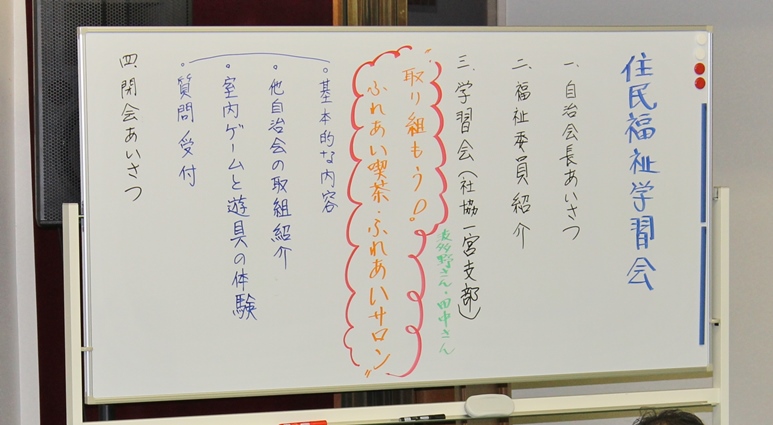 住民福祉学習会
一、自治会長あいさつ
二、福祉委員紹介
三、学習会(社協一宮支部)
波多野さん・田中さん
“取り組もう!
ふれあい喫茶・ふれあいサロン”
・基本的な内容
・他自治会の取組紹介
・室内ゲームと遊具の体験
・質問受付
四、閉会あいさつ